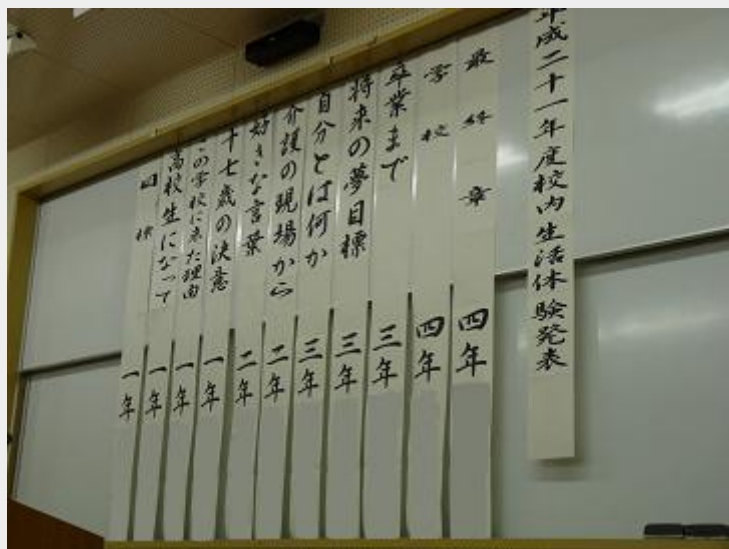 平成二十一年度校内生活体験発表
最終章 四年
学校 四年
卒業まで 三年
将来の夢目標 三年
自分とは何か 三年
介護の現場から 二年
好きな言葉 二年
十七歳の決意 一年
この学校に来た理由 一年
高校生になって 一年
目標 一年